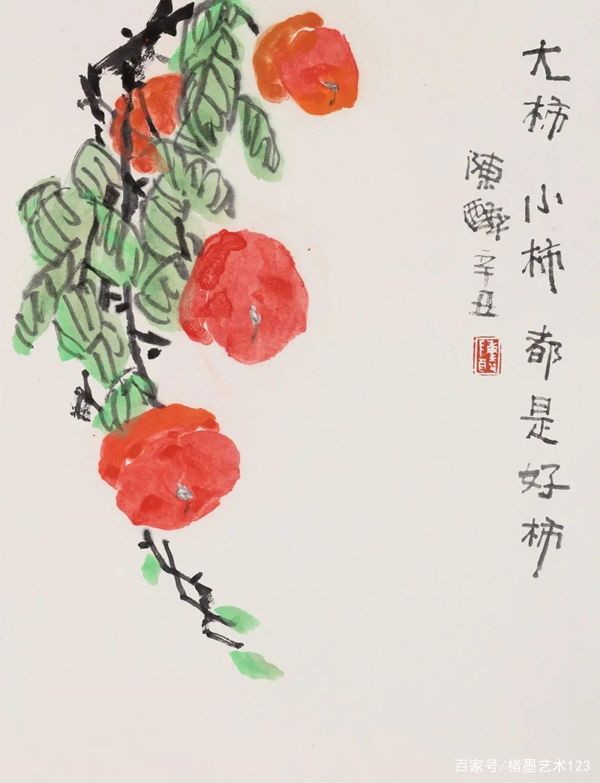 大柿小柿都是好柿
陳醉辛丑
百家号/楮墨艺术123